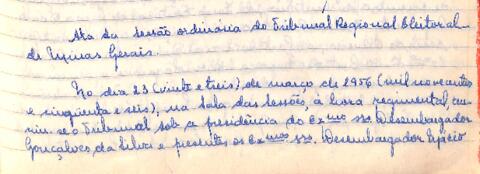 Ata da sessão ordinária do Tribunal Regional Eleitoral
de Minas Gerais.
No dia 23 (vinte e treis), de março de 1956 (mil novecentos
e cinqüenta e seis), na sala das sessões, à hora regimental, reu-
niu-se o Tribunal sob a presidência do exmo sr. Desembargador
Gonçalves da Silva e presentes os exmos srs. Desembargador